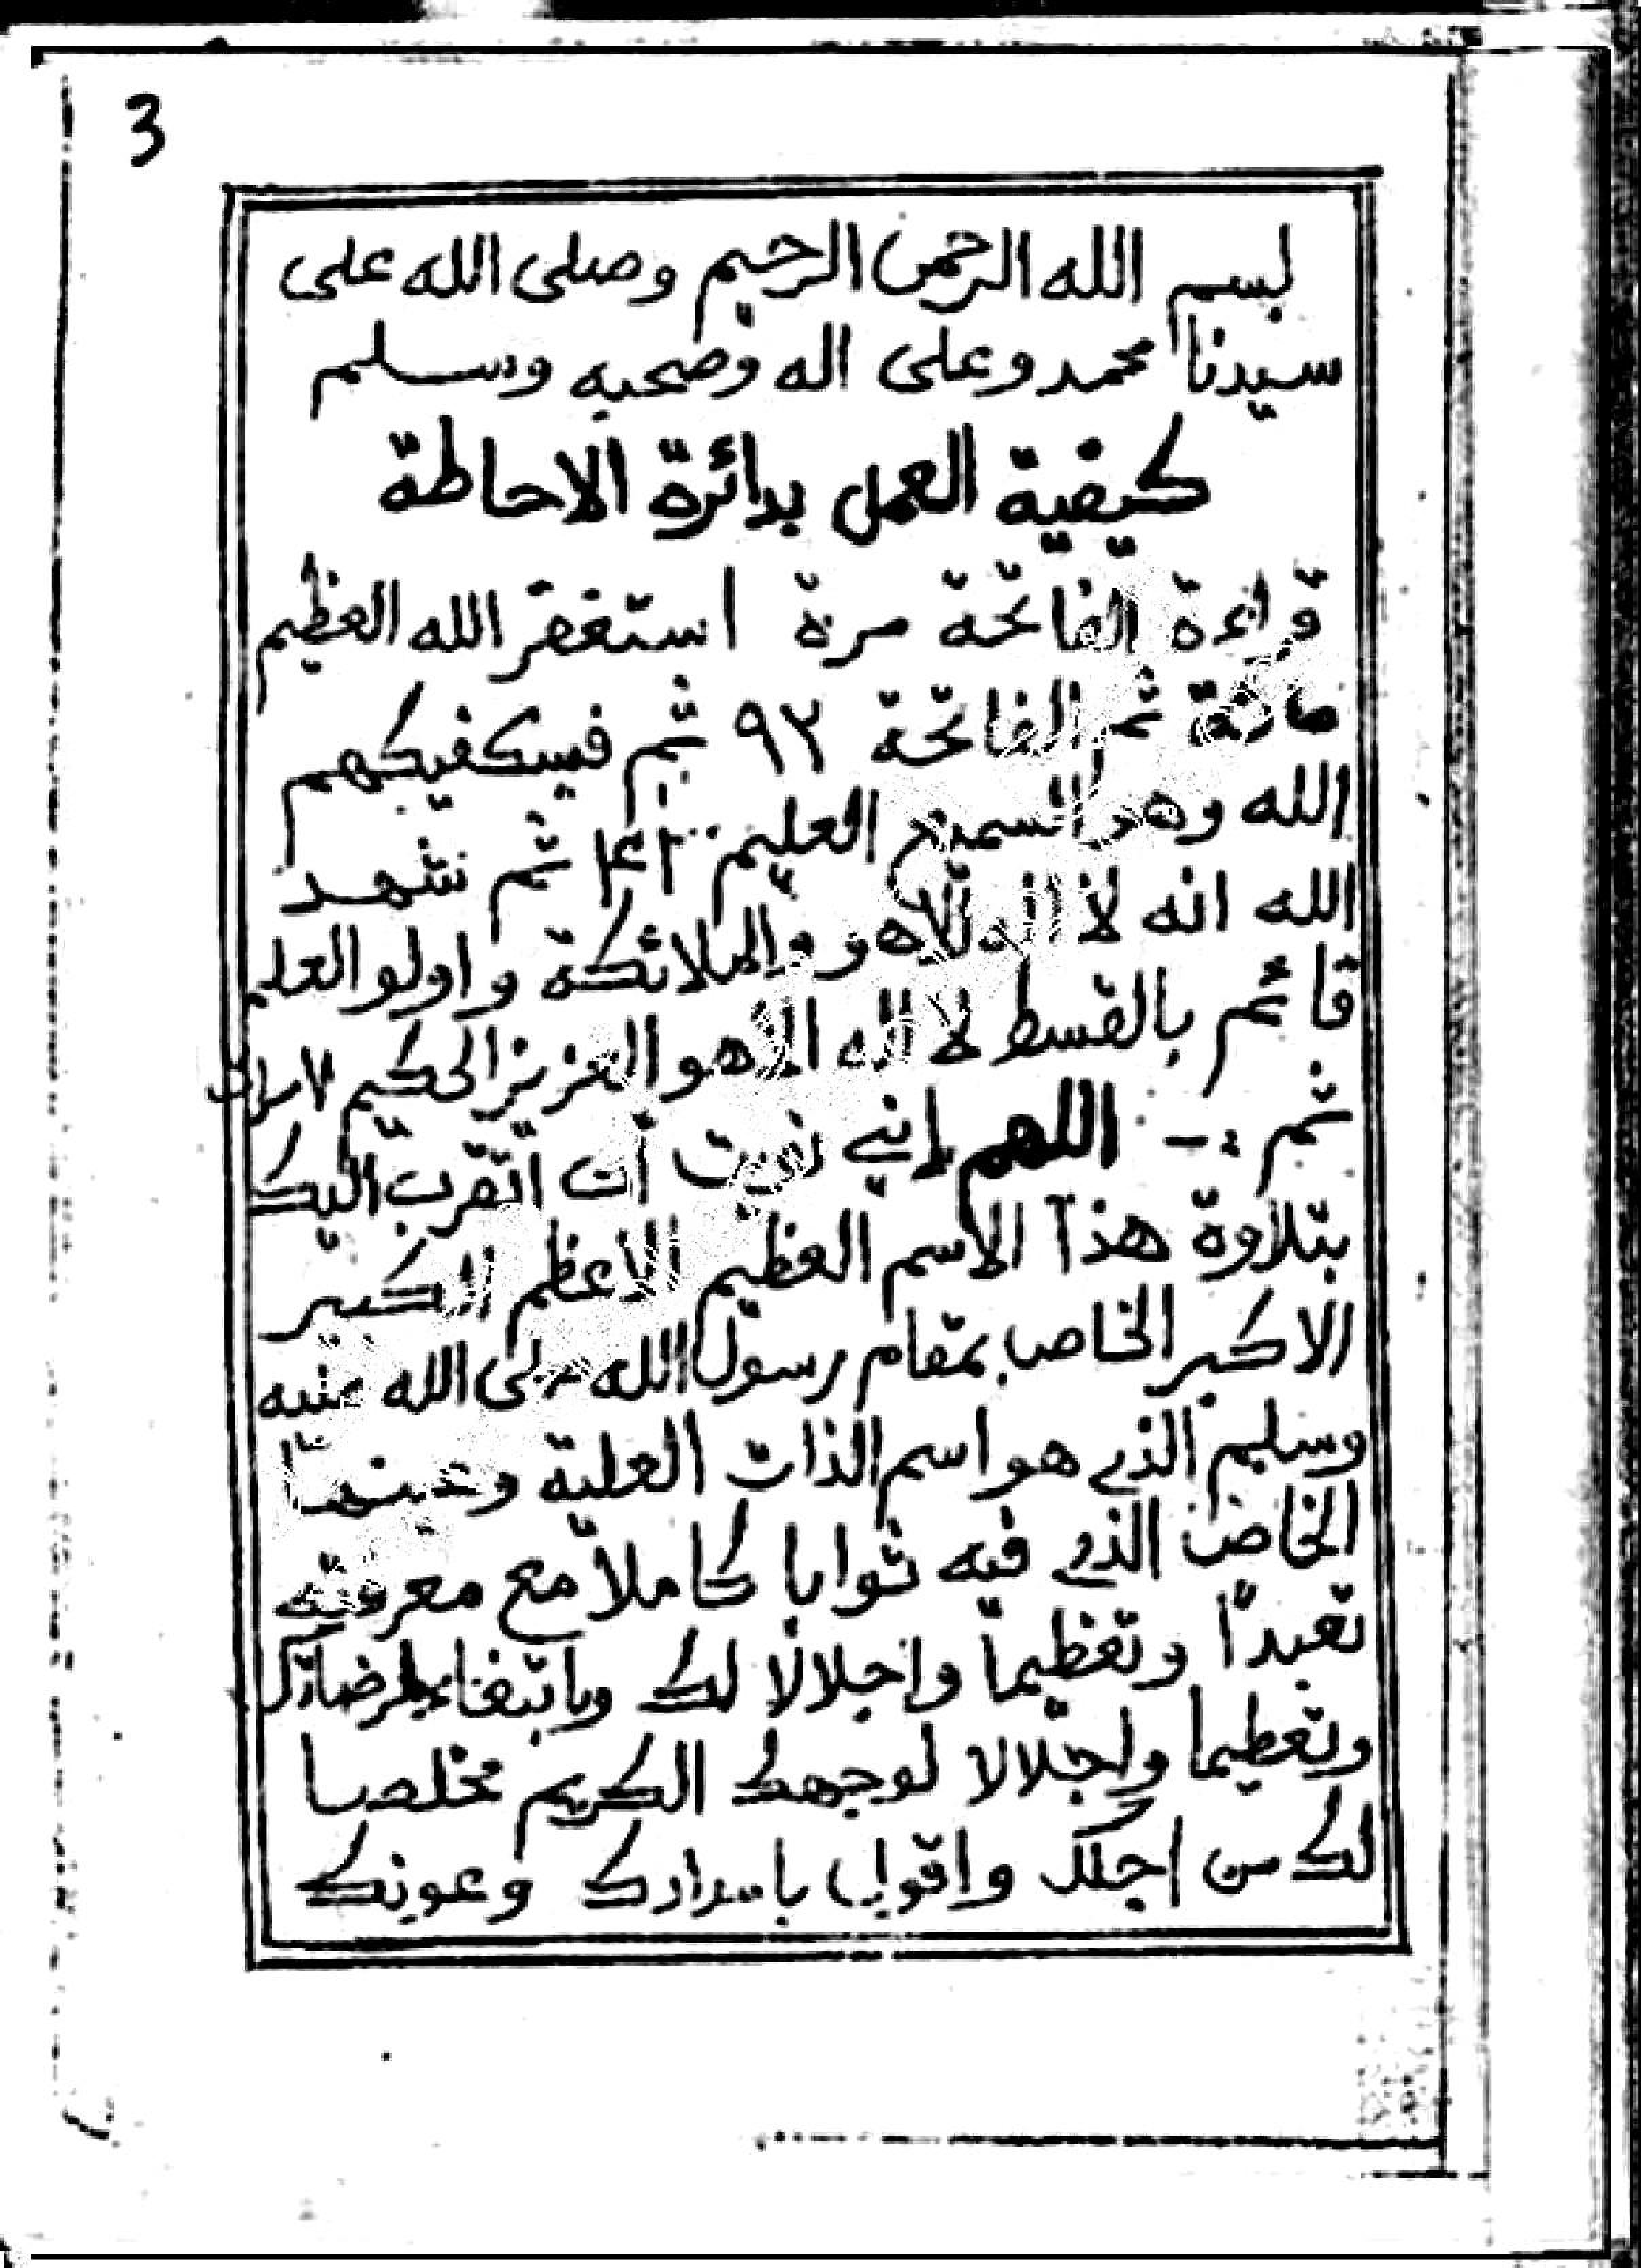 3
بسم الله الرحمن الرحيم وصلى الله على
سيدنا محمد وعلى اله وصحبه وسلم
كيفية العمل بدائرة الاحاطة
قراءة الفاتحة مرة استغفر الله العظيم
مائة ثم الفاتحة ٩٢ ثم فسيكفيكهم
الله وهو السميع العليم ثم نشهد
الله انه لا اله الا هو والملائكة واولو العلم
قائم بالقسط لا اله الا هو العزيز الحكيم
ثم :- اللهم إني نويت أن اتقرب اليك
بتلاوة هذا الاسم العظيم الاعظم الكبير
الاكبر الخاص بمقام رسول الله صلى الله عليه
وسلم الذي هو اسم الذات العلية وعينها
الخاص الذي فيه ثوابا كاملا مع معرفته
تعبدًا وتعظيما واجلالا لك وبابتغاء لمرضاتك
وتعظيما واجلالا لوجهك الكريم مخلصا
لك من اجلك واقول بامدادك وعونك